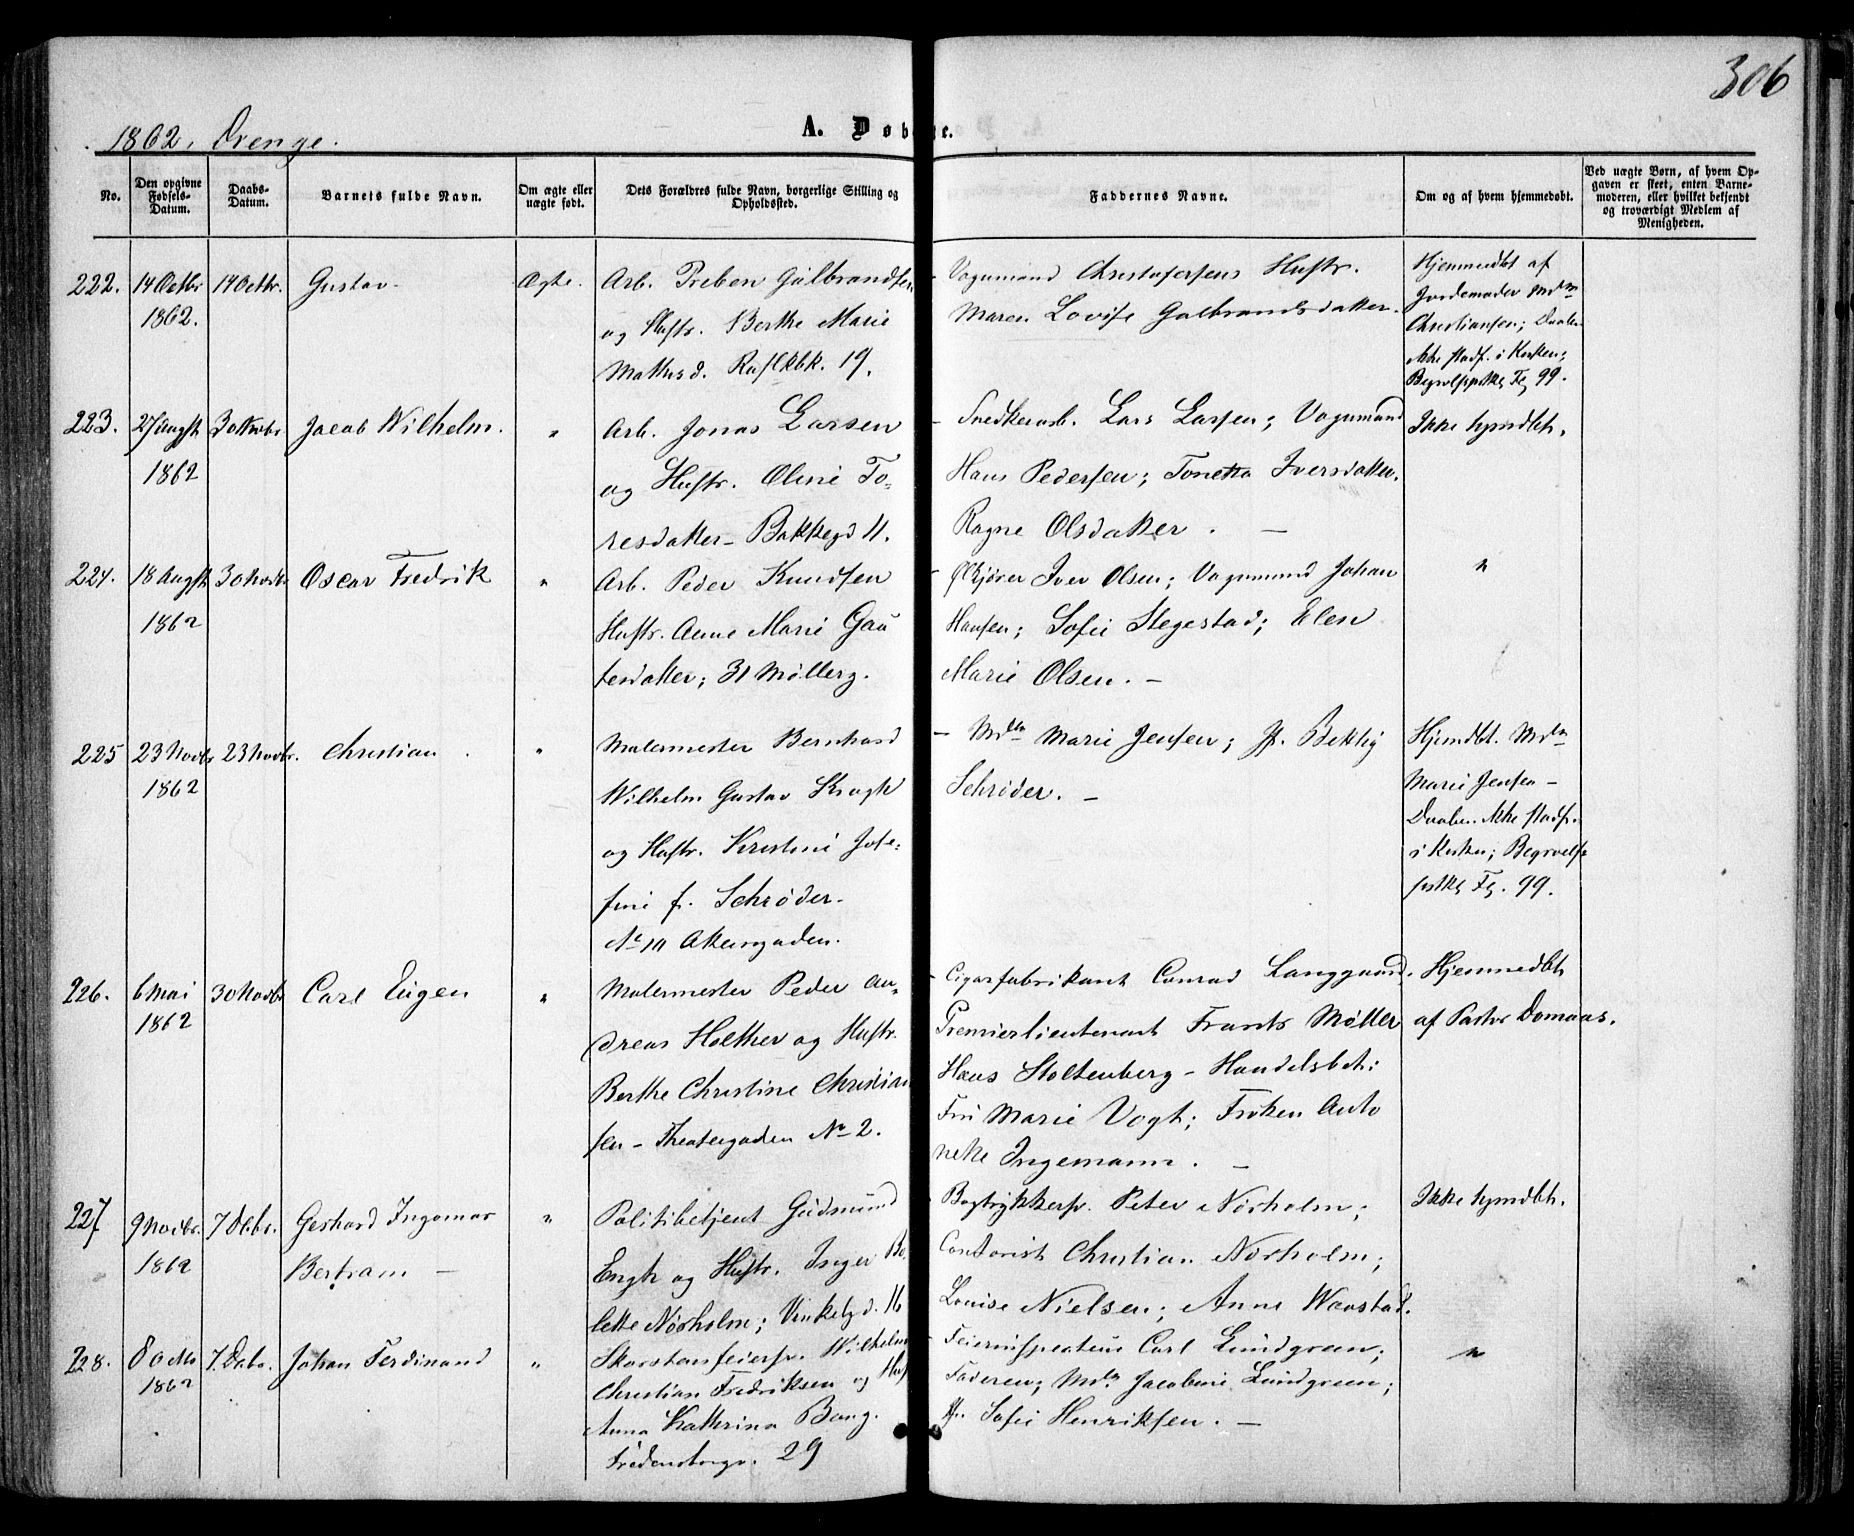 306
1862, Drenge.
A. Døbte.
No.
Den opgivne Fødsels-Datum.
Daabs-Datum.
Barnets fulde Navn.
Om ægte eller uægte født.
Dets Forældres fulde Navn, borgerlige Stilling og Opholdssted.
Faddernes Navne.
Om og af hvem hjemmedøbt.
Ved uægte Børn, af hvem Opgaven er skeet, enten Barnemoderen, eller hvilket bekjendt og troværdigt Medlem af Menigheden.
222. 14 Octbr 1862. 14 Octbr. Gustav Ægte.
Arb. Preben Gulbrandsen
og Hustr. Berthe Marie
Mathisd. 19.
Vognmand Christofersens Hustr.
Maren Lovise Gulbrandsdatter.
Hjemmedbt af
Jordemoder Mdm
Christiansen; Daaben
ikke stadf. i Kirken;
99.
223. 27 Augst 1862 30 Novbr Jacob Wilhelm. "
Arb. Jonas Larsen
og Hustr. Oline To-
resdatter - Bakkegd 11.
- Snedkerarb. Lars Larsen; Vognmand
Hans Pedersen; Tonetta Iversdatter.
Ragne Olsdatter. -
Ikke hjmdbt.
224. 18 Augst 1862 30 Novbr. Oscar Fredrik "
Arb. Peder Knudsen
Hustr. Anne Marie Gau
tesdatter; 31 Møllerg.
- Ølkjører Iver Olsen; Vognmand Johan
Hansen; Sofie Stegestad; Elen
Marie Olsen. -
"
225 23 Novbr 1862 23 Novbr. Christian "
Malermester Bernhard
Wilhelm Gustav Krogh
og Hustr. Kristine Jose-
fine f. Schrøder.
Akersgaden.
- Mdm Marie Jensen; Jf. Bekky
Schrøder. -
Hjemdbt. Mdm
Marie Jensen -
Daaben ikke stadf.
i Kirken;
99.
226. 6 Mai 1862 30 Novbr Carl Eugen "
Malermester Peder An-
dreas Holther og Hustr.
Berthe Christine Christian
sen - Theatergaden No 2.
- Cigarfabrikant Conrad Langgaard.
Premierlieutenant Frants Møller
Hans Stoltenberg - Handelsbet:
Fru Marie Vogt; Frøken Anto
nette Ingemann. -
Hjemmedbt
af Pastor Domaas.
227 9 Novbr. 1862 7 Decbr. Gerhard Ingomar
Bertram - "
Politibetjent Gudmund
Engh og Hustr. Inger Bo
lette Nørholm; Vinkelgd. 16
- Bogtrykkersv. Peter Nørholm;
Contorist Christian Nørholm;
Louise Nielsen; Anne Wavstad.
Ikke hjmdbt.
228. 8 Octb 1862 7. Decbr. Johan Ferdinand "
Skorstensfeiersv. Wilhelm
Christian Fredriksen og Hust
Anna Kathrina Bang.
Fredensborgv. 29
- Feierinspecteur Carl Lundgreen;
Faderen; Mdm Jacobine Lundgreen;
Jfr. Sofie Henriksen. -
"